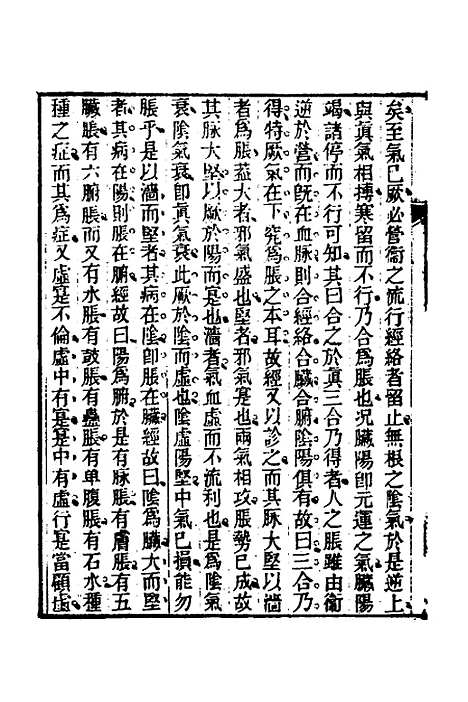 矣至氣已厥必營衞之流行經絡者留止無根之陰氣於是逆上
與眞氣相摶寒留而不行乃合爲脹也况臟陽卽元運之氣臟陽
竭諸停而不行可知其曰合之於眞三合乃得者人之脹雖由衞
逆於營而旣在血脉則合經絡合臟合腑陰陽俱有故曰三合乃
得特厥氣在下究爲脹之本耳故經又以診之而其脉大堅以濇
者爲脹葢大者邪氣盛也堅者邪氣寔也兩氣相攻脹勢已成故
其脉大堅以厥於陽而是也濇者氣血虛而不流利也是爲陰氣
衰陰氣衰卽眞氣衰此厥於陰而虛也陰虛陽堅中氣已損能勿
脹乎是以濇而堅者其病在陰卽脹在臟經故曰陰爲臟大而堅
者其病在陽則脹在腑經故曰陽爲腑於是有脉脹有膚脹有五
臟脹有六腑脹而又有水脹有鼓脹有蠱脹有单腹脹有石水種
種之症而其爲症又虛寔不倫虛中有寔寔中有虛行寔當顧虛